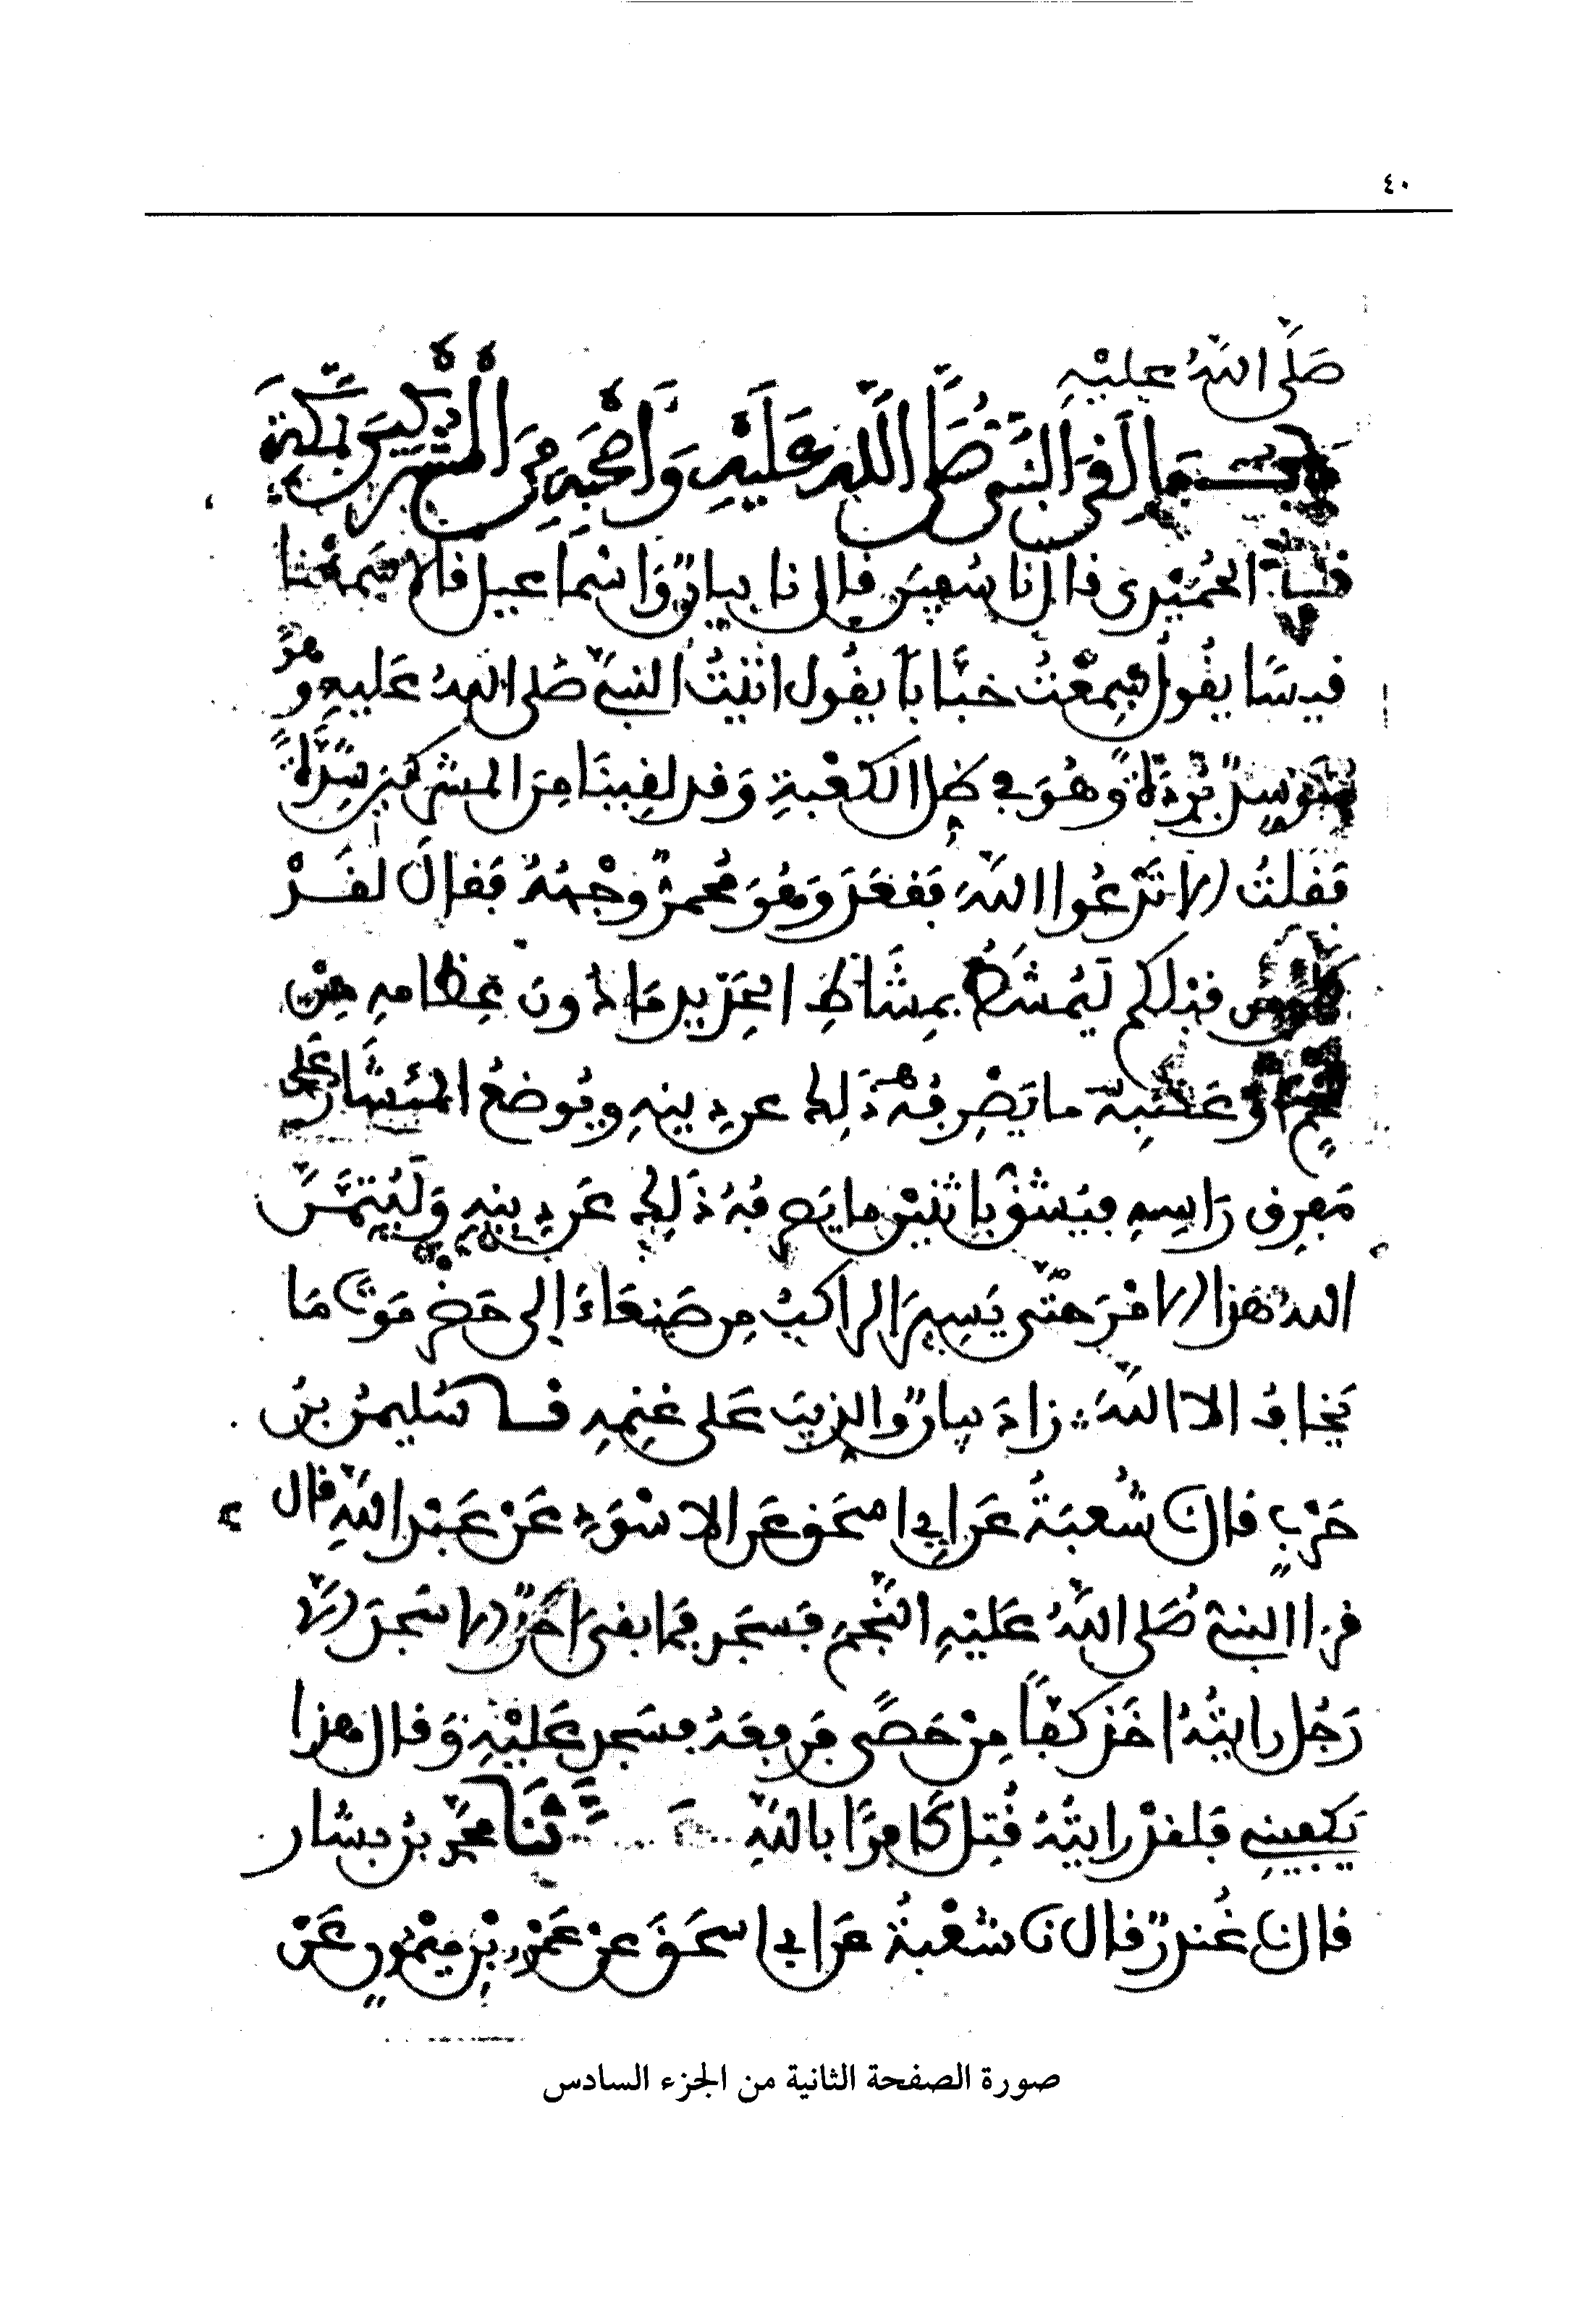 ٤٠
صَلَّى اللّٰهُ عليْهِ
بــاب مَا لَقِىَ النَّبىُّ صَلَّى اللَّهُ عَلَيْهِ وَأَصْحَبُهِ مِنَ الْمُشْرِكِينَ بِمَكَّةَ
الحُمَيْدِى قال نا سُفيَن قال نا بيانٌ وَاسْماعيل قالا سَمِعْنا
قيسًا يقُول سَمِعْتُ خبَّابًا يقُول اتيْتُ النبيَّ صَلى اللّٰهُ عَليهِ وَهُوَ
مُتَوَسِدٌ بُرْدَةً وَهُوَ في ظل الكعْبةِ وَقد لقِينَا مِنَ المشركين شِدَّةً
فقُلتُ الا تَدْعُوا اللّٰهَ فقعَدَ وَهُوَ مُحمرٌّ وجْهُهُ فقال لقَــدْ
قبلكم لَيُمْشَطُ بمِشَاطِ الحَدِيدِ مَا دُونَ عِظامهِ مِنْ
لحْمٍ اوْ عَصَبٍ ما يَصْرِفُهُ ذَلِك عن دِينِهِ ويُوضعُ المِئشَارُ عَلَى
مَفرِقِ رَاسِهِ فيُشَقُّ بِاثنَيْنِ ما يَصرِفُهُ ذَلِك عَن دِينِهِ وَلَيُتِمَّنَّ
اللّٰهُ هَذا الامْرَ حَتَّى يَسِيرَ الراكبُ مِن صَنعَاءَ إلى حَضرَمَوْتَ مَا
يَخافُ الا اللّٰهَ زادَ بيانٌ والذيبَ عَلى غنمِهِ ثنــا سُليمنُ بنُ
حَرْبٍ قال نا شُعبَةُ عَن ابي اسحَق عَن الاسْوَدِ عَنْ عَبْد اللّٰهِ قال
قرا النبيُّ صَلى اللّٰهُ عَليْهِ النَّجمَ فسَجَد فما بقىَ احَدٌ الا سَجَدَ الا
رَجُل رايتُهُ اخَذ كفًّا مِنْ حَصًى فرفعَهُ فسَجد عَليْهِ وَقال هذا
يَكفيني فلقدْ رايتُهُ قُتِل كَافِرًا باللّٰهِ ثنَا محمّد بنُ بشار
قال نا غُندرٌ قال نا شعْبةُ عَن ابي اسحَقَ عنْ عَمْرِو بْنِ ميْمُونٍ عَنْ
صورة الصفحة الثانية من الجزء السادس